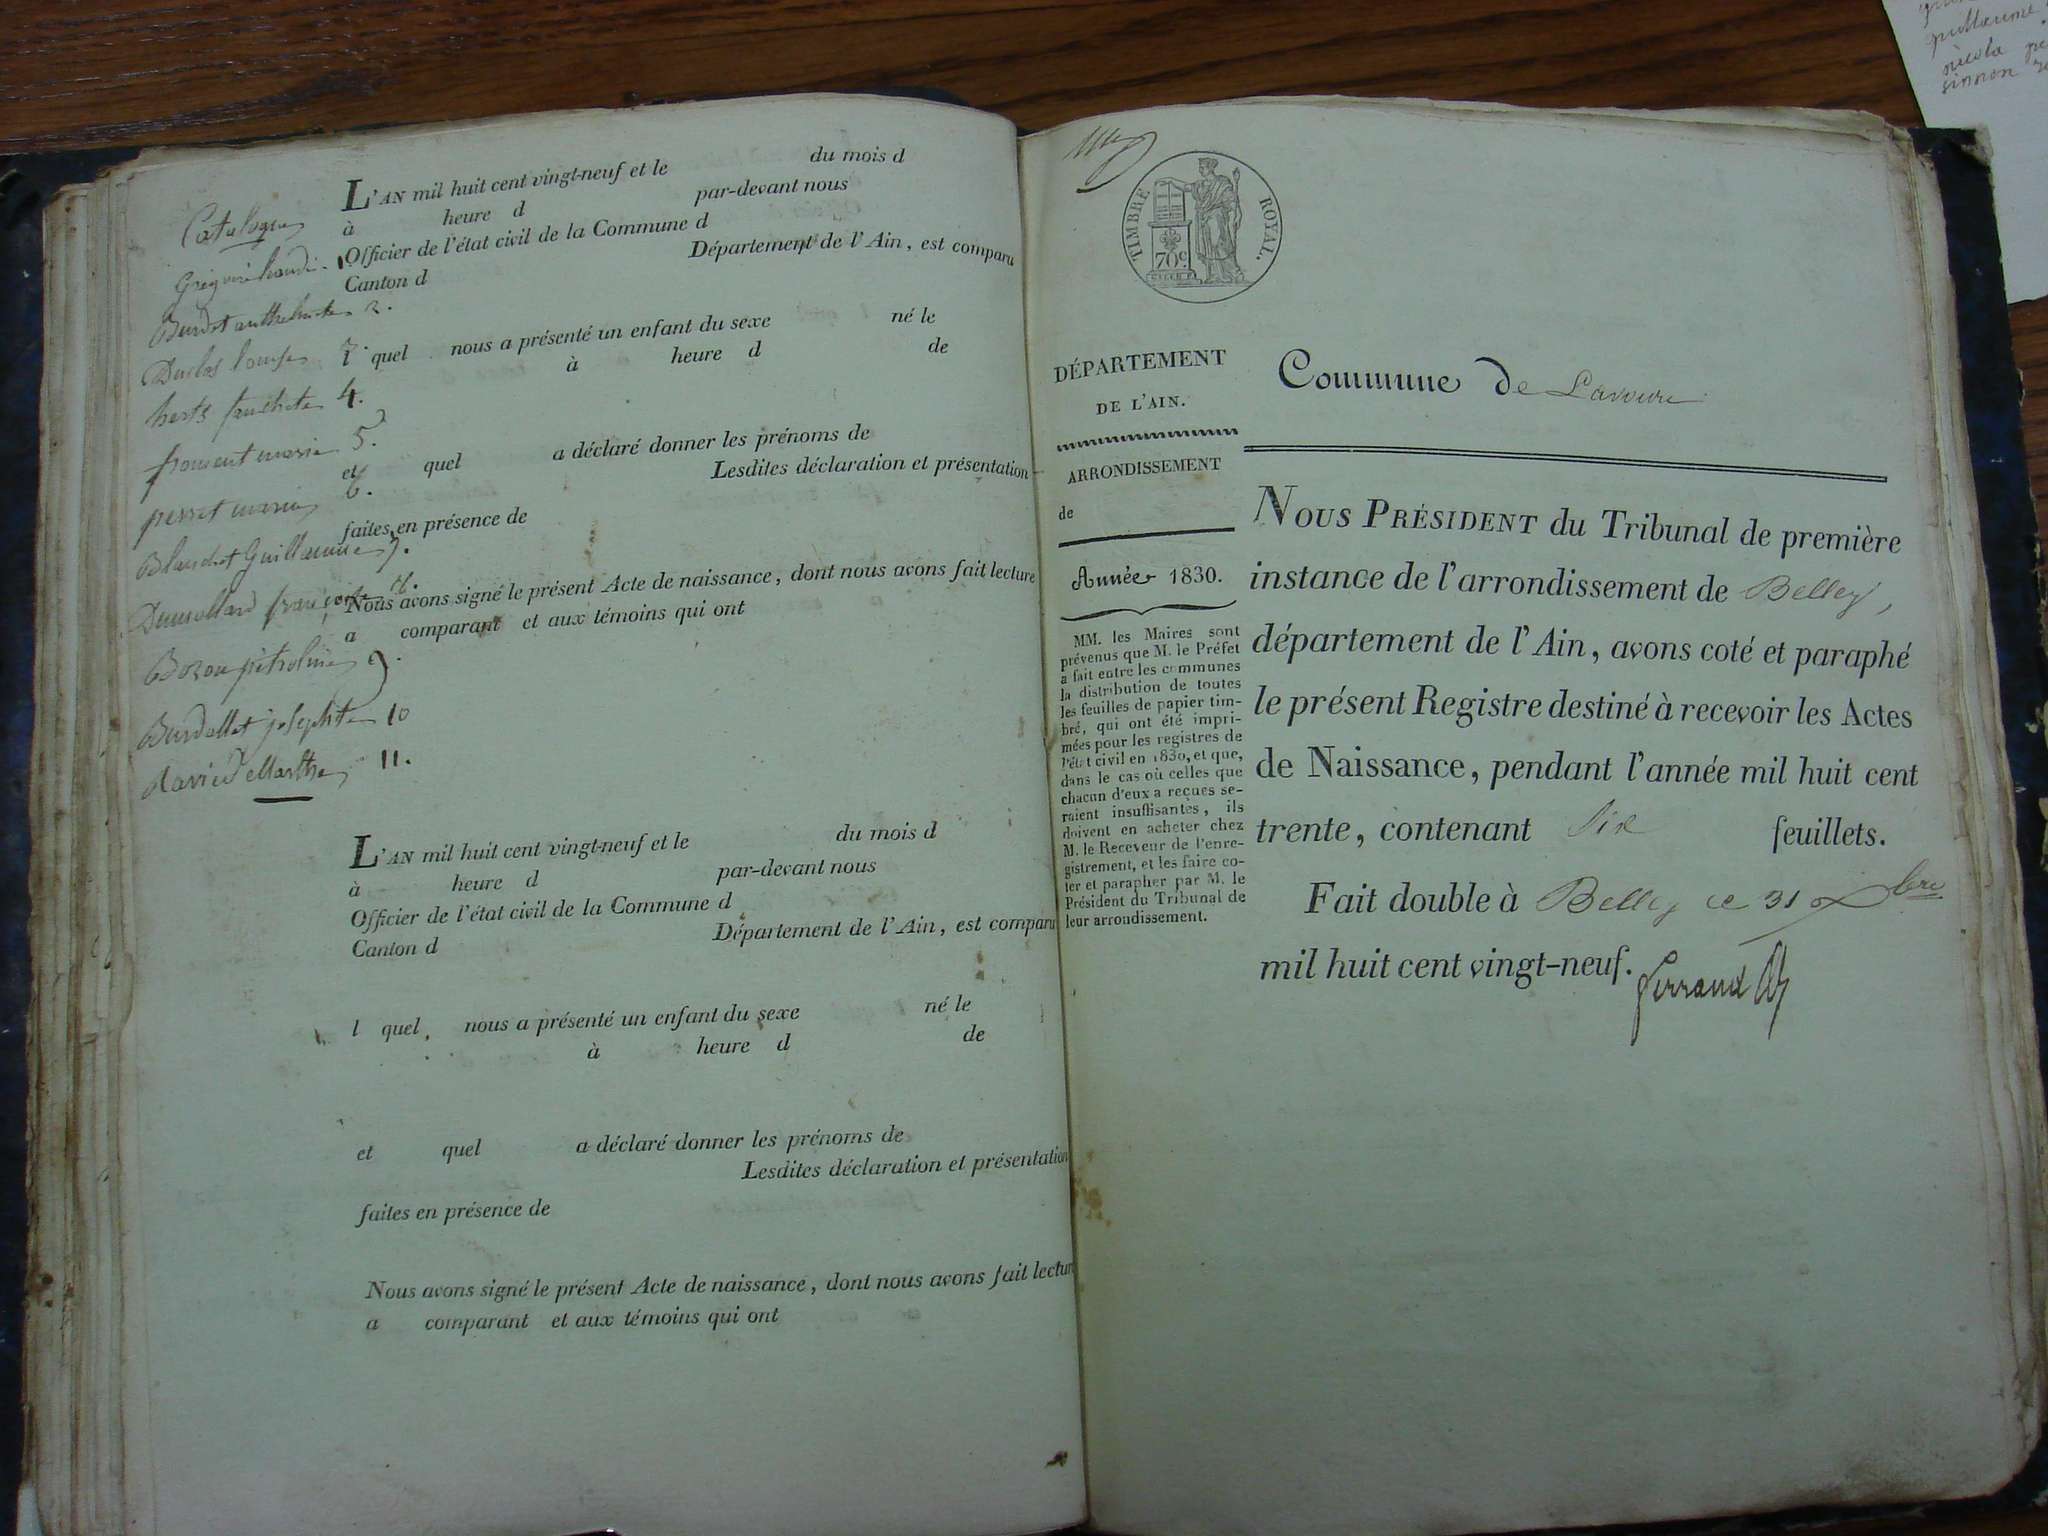 Catalogue
Grégoire Claudi. 1
Burdet anthelmete 2.
Duclos louise 3.
herts franchete 4.
froment marie 5.
perret marie 6.
Blanchet Guillaume 7.
Dumollard françoise 8.
Bozon pétroline 9.
Burdellet josephte 10
Ravier Marthe 11.
L'AN mil huit cent vingt-neuf et le du mois d
à heure d par-devant nous
Officier de l'état civil de la Commune d
Canton d Département de l'Ain, est comparu
l quel nous a présenté un enfant du sexe né le
à heure d de
et quel a déclaré donner les prénoms de
Lesdites déclaration et présentation
faites en présence de
Nous avons signé le présent Acte de naissance, dont nous avons fait lecture
a comparant et aux témoins qui ont
L'AN mil huit cent vingt-neuf et le du mois d
à heure d par-devant nous
Officier de l'état civil de la Commune d
Canton d Département de l'Ain, est comparu
l quel nous a présenté un enfant du sexe né le
à heure d de
et quel a déclaré donner les prénoms de
Lesdites déclaration et présentation
faites en présence de
Nous avons signé le présent Acte de naissance, dont nous avons fait lecture
a comparant et aux témoins qui ont
TIMBRE ROYAL.
70c
DÉPARTEMENT
DE L'AIN.
ARRONDISSEMENT
de
Année 1830.
MM. les Maires sont
prévenus que M. le Préfet
a fait entre les communes
la distribution de toutes
les feuilles de papier tim-
bré, qui ont été impri-
mées pour les registres de
l'état civil en 1830, et que,
dans le cas où celles que
chacun d'eux a reçues se-
raient insuffisantes, ils
doivent en acheter chez
M. le Receveur de l'enre-
gistrement, et les faire co-
ter et parapher par M. le
Président du Tribunal de
leur arrondissement.
Commune de Lavoure
NOUS PRÉSIDENT du Tribunal de première
instance de l'arrondissement de Belley,
département de l'Ain, avons coté et paraphé
le présent Registre destiné à recevoir les Actes
de Naissance, pendant l'année mil huit cent
trente, contenant Six feuillets.
Fait double à Belley ce 31 Xbre
mil huit cent vingt-neuf.
Ferrand
guillaume
nicola
simon